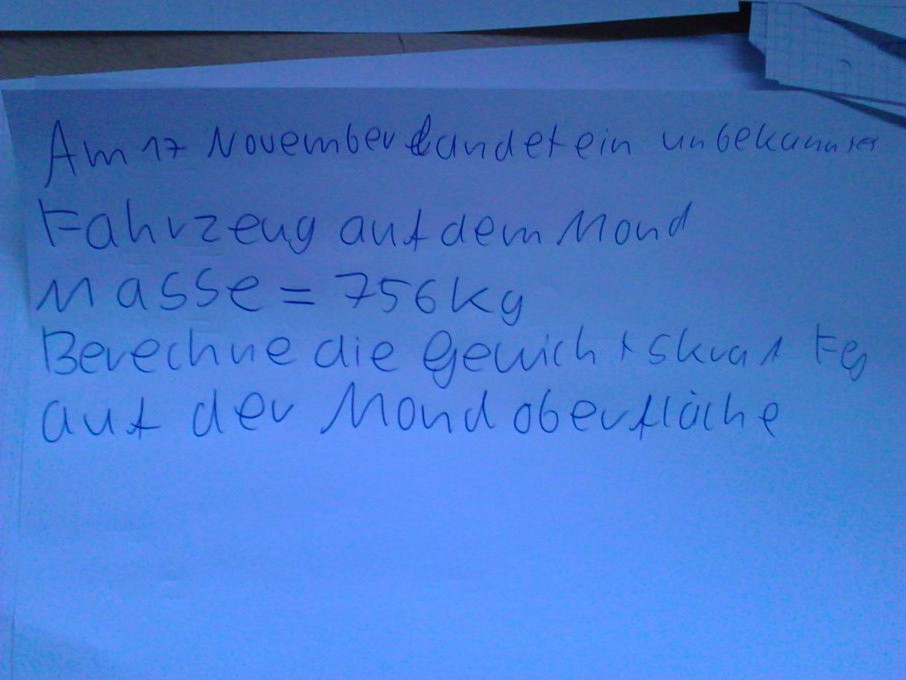 Am 17 November landet ein unbekanntes
Fahrzeug auf dem Mond
Masse = 756kg
Berechne die Gewichtskraft Fg
auf der Mondoberfläche